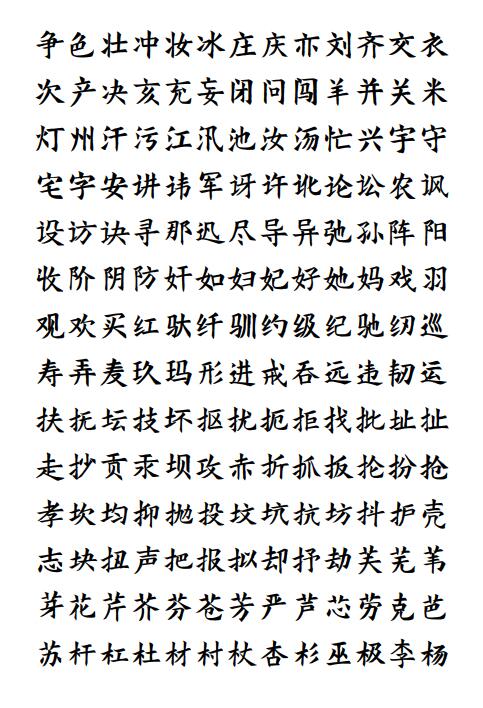 争色壮冲妆冰庄庆亦刘齐交衣
次产决亥充妄闭问闯羊并关米
灯州汗污江汛池汝汤忙兴宇守
宅字安讲讳军讶许讹论讼农讽
设访诀寻那迟尽导异弛孙阵阳
收阶阴防奸如妇妃好她妈戏羽
观欢买红驮纤驯约级纪驰纫巡
寿弄麦玖玛形进戒吞远违韧运
扶抚坛技坏抠扰扼拒找批址扯
走抄贡汞坝攻赤折抓扳抡扮抢
孝坎均抑抛投坟坑抗坊抖护壳
志块扭声把报拟却抒劫芙芜苇
芽花芹芥芬苍芳严芦芯劳克芭
苏杆杠杜材村杖杏杉巫极李杨